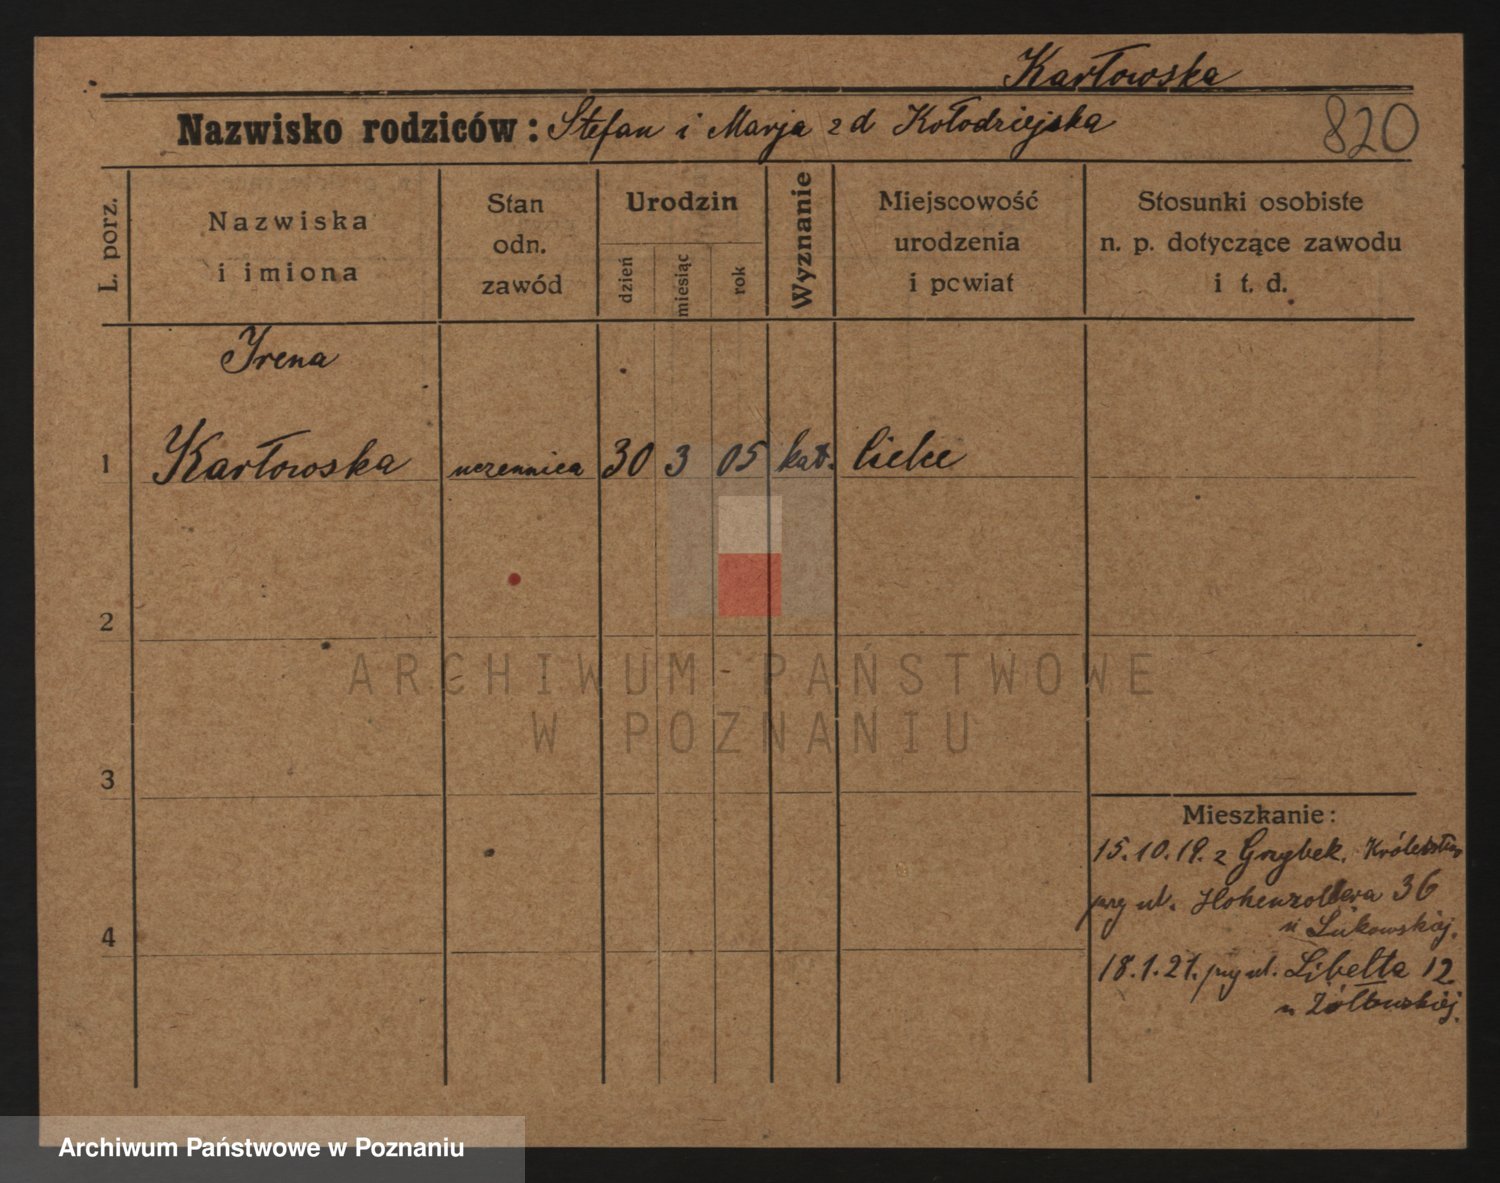 Karłowska
Nazwisko rodziców: Stefan i Marja z d Kołodziejska
820
L. porz.
Nazwiska
i imiona
Stan
odn.
zawód
Urodzin
dzień
miesiąc
rok
Wyznanie
Miejscowość
urodzenia
i powiat
Stosunki osobiste
n. p. dotyczące zawodu
i t. d.
Irena
1 Karłowska uczennica 30 3 05 kat.
2
3
4
Mieszkanie:
15.10.19. z Grzybek, Królestwo
przy ul. Hohenzollera 36
u Lukowskiej.
18.1.21. przy ul. Libelta 12
u Żółtowskiej.
ARCHIWUM PAŃSTWOWE
W POZNANIU
Archiwum Państwowe w Poznaniu